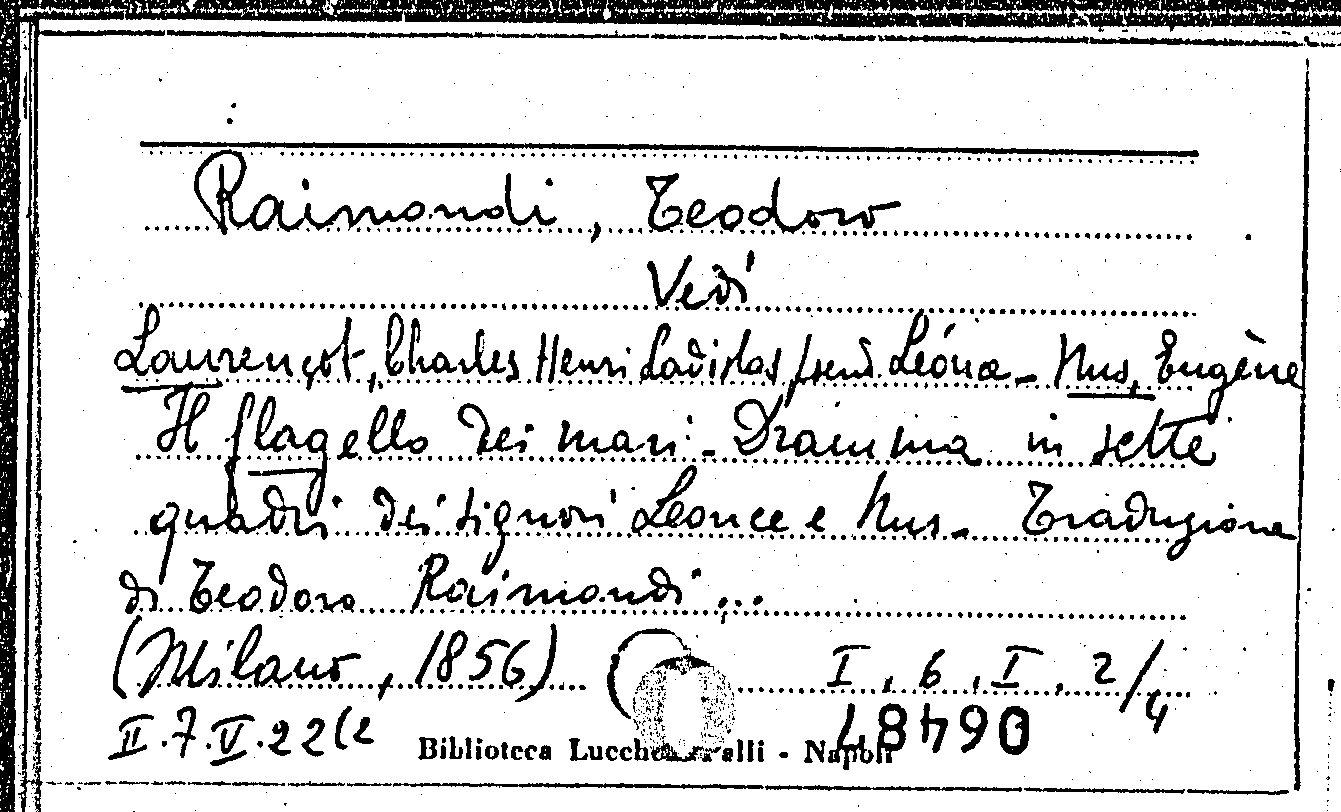 Raimondi, Teodoro
Vedi
Laurençot, Charles Henri Ladislas pseud Léonce - Nus, Eugène
Il flagello dei mari - Dramma in sette
quadri dei signori Leonce e Nus - Traduzione
di Teodoro Raimondi...
(Milano, 1856) I, 6, I, 2/4
II.7.V.22(2
Biblioteca Lucchesi Palli - Napoli
06487